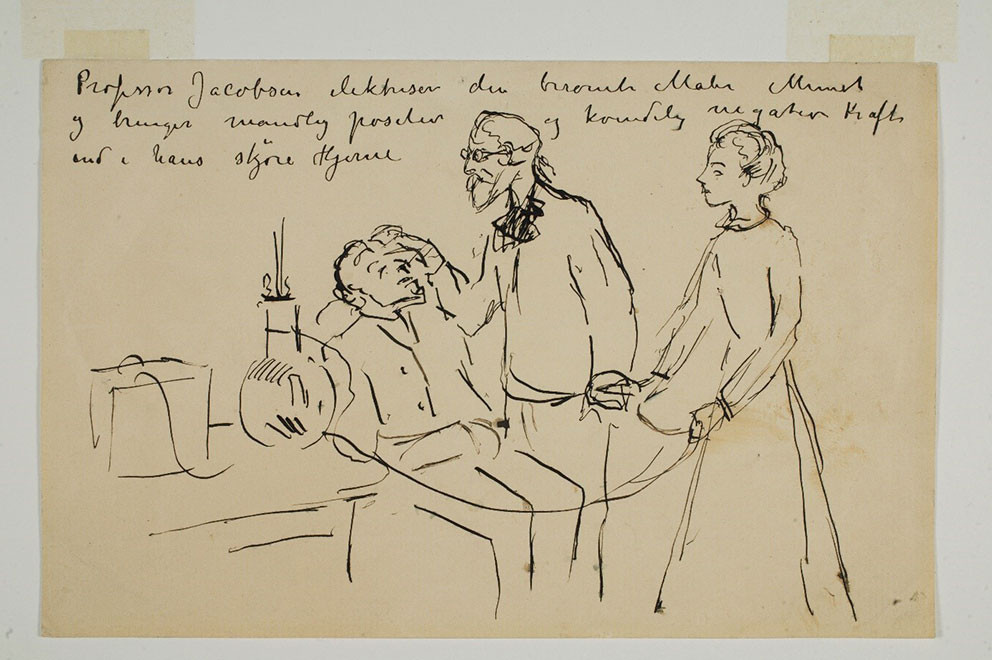 Professor Jacobson elektriserer den berömte Maler Munch
og bringer mandlig positiv og kvindelig negativ Kraft
ind i hans skjöre Hjerne